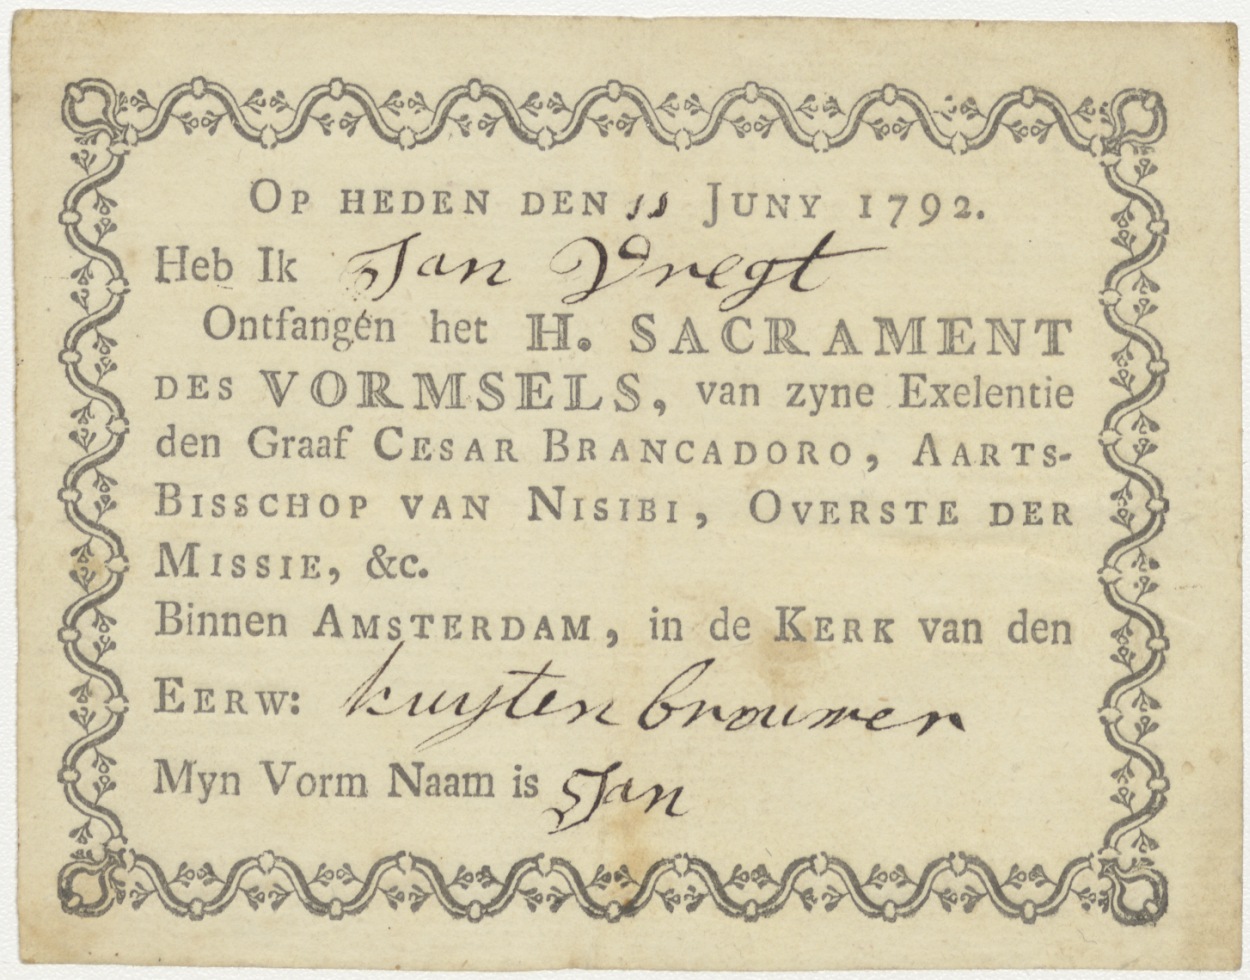 OP HEDEN DEN 11 JUNY 1792.
Heb Ik Jan Vregt
Ontfangén het H. SACRAMENT
DES VORMSELS, van zyne Exelentie
den Graaf CESAR BRANCADORO, AARTS-
BISSCHOP VAN NISIBI, OVERSTE DER
MISSIE, &c.
Binnen AMSTERDAM, in de KERK van den
EERW: kuyten brouwer
Myn Vorm Naam is Jan